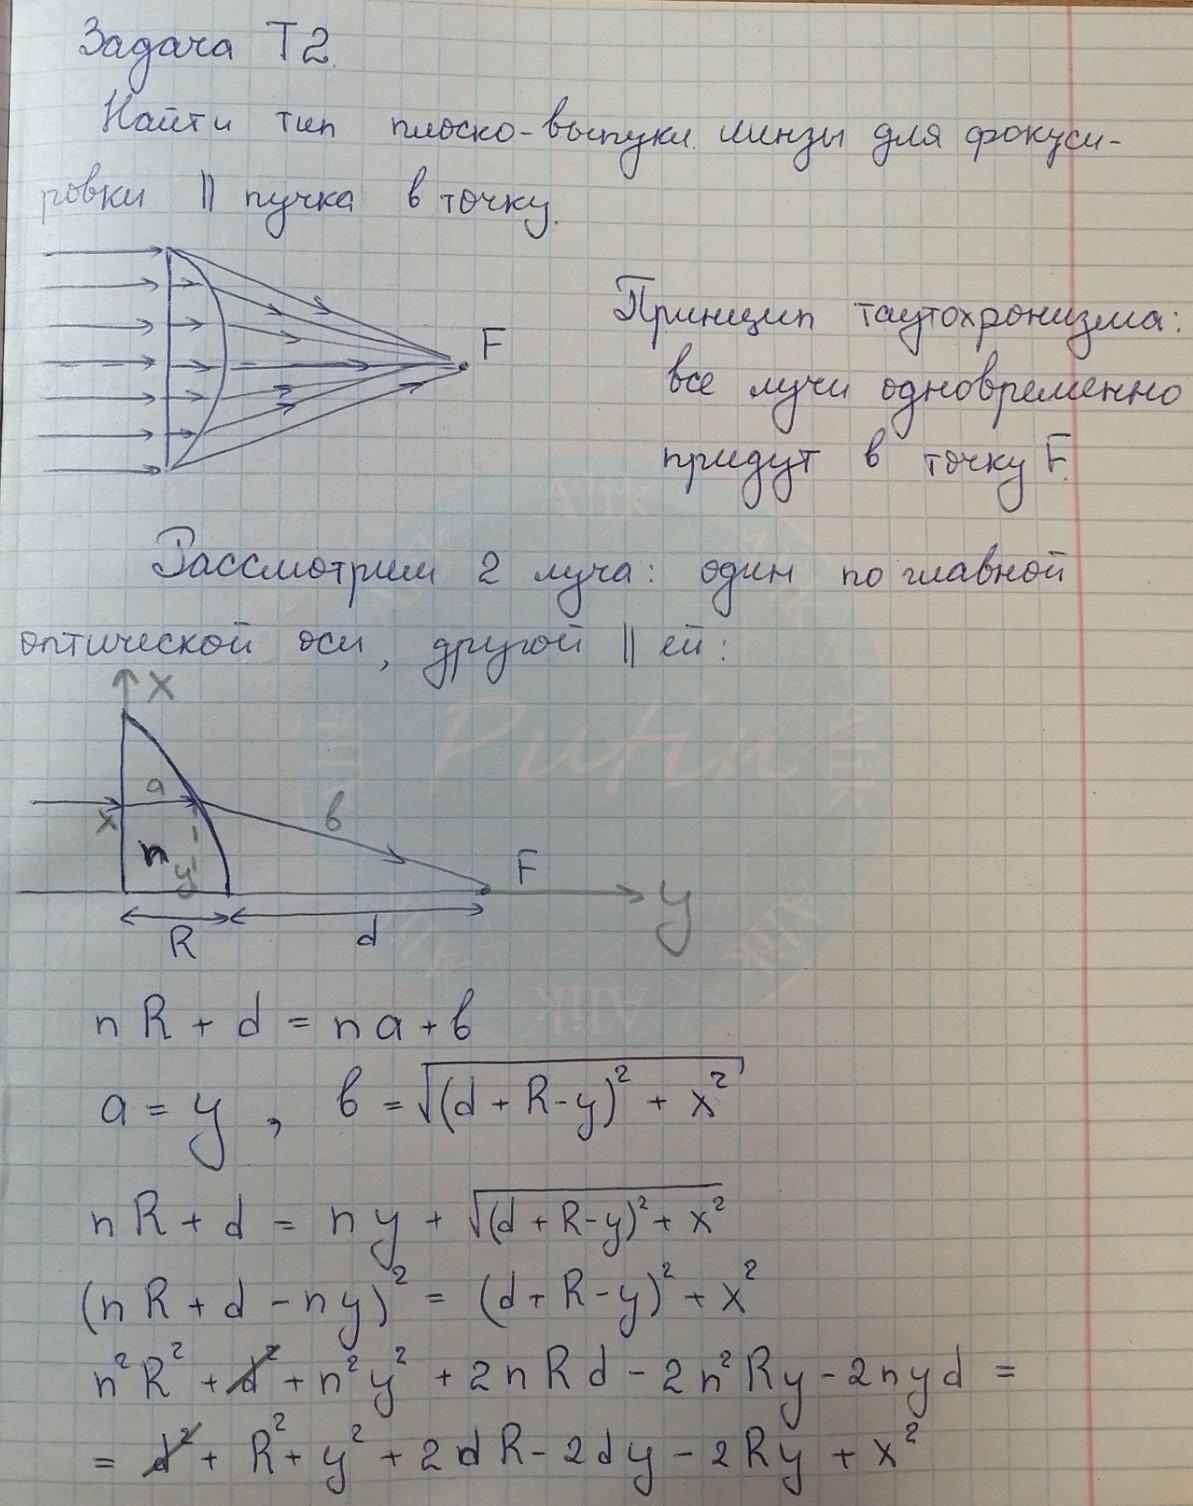 Задача Т2.
Найти тип плоско-выпукл. линзы для фокуси-
ровки || пучка в точку.
F
Принцип таутохронизма:
все лучи одновременно
придут в точку F.
Рассмотрим 2 луча: один по главной
оптической оси, другой || ей:
x
a
x
в
n
y
F
y
R
d
nR + d = na + в
a = y , в = √((d + R - y)² + x²)
nR + d = ny + √((d + R - y)² + x²)
(nR + d - ny)² = (d + R - y)² + x²
n²R² + d² + n²y² + 2nRd - 2n²Ry - 2nyd =
= d² + R² + y² + 2dR - 2dy - 2Ry + x²
Putin
Alik
Alik
Alik
Alik
Alik
Alik
Alik
Alik